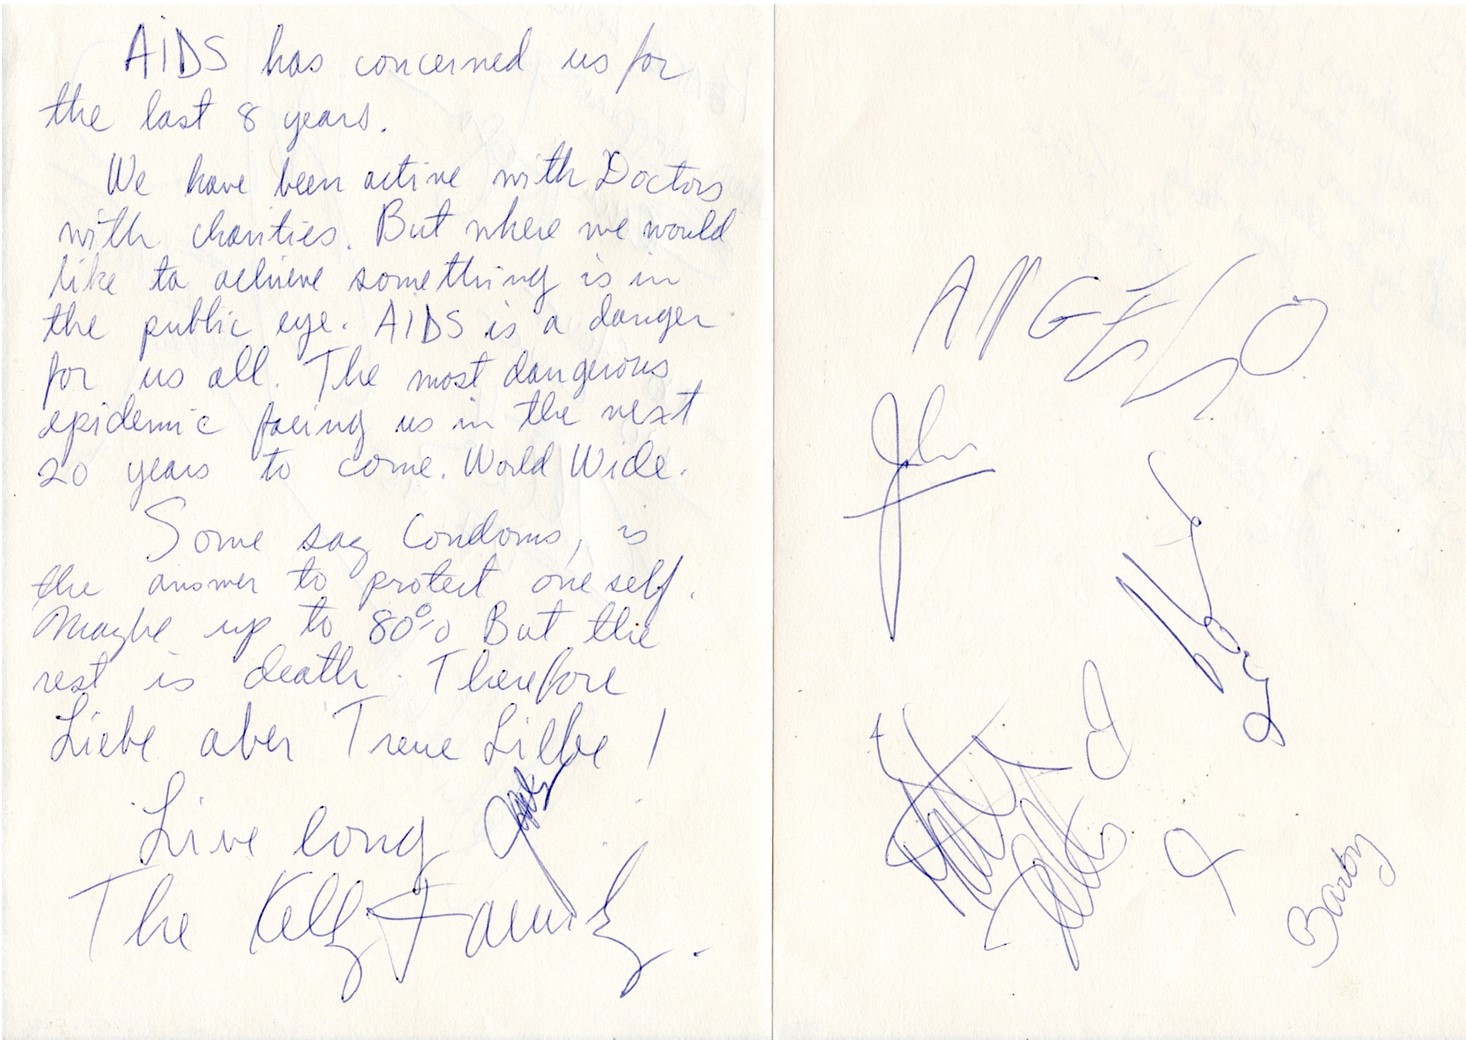 AIDS has concerned us for
the last 8 years.
We have been active with Doctors
with charities. But where we would
like to achieve something is in
the public eye. AIDS is a danger
for us all. The most dangerous
epidemic facing us in the next
20 years to come. World Wide.
Some say Condoms, is
the answer to protect oneself.
Maybe up to 80% But the
rest is death. Therefore
Liebe aber Treue Liebe!
Live long
The Kelly Family.
ANGELO
John
Barby